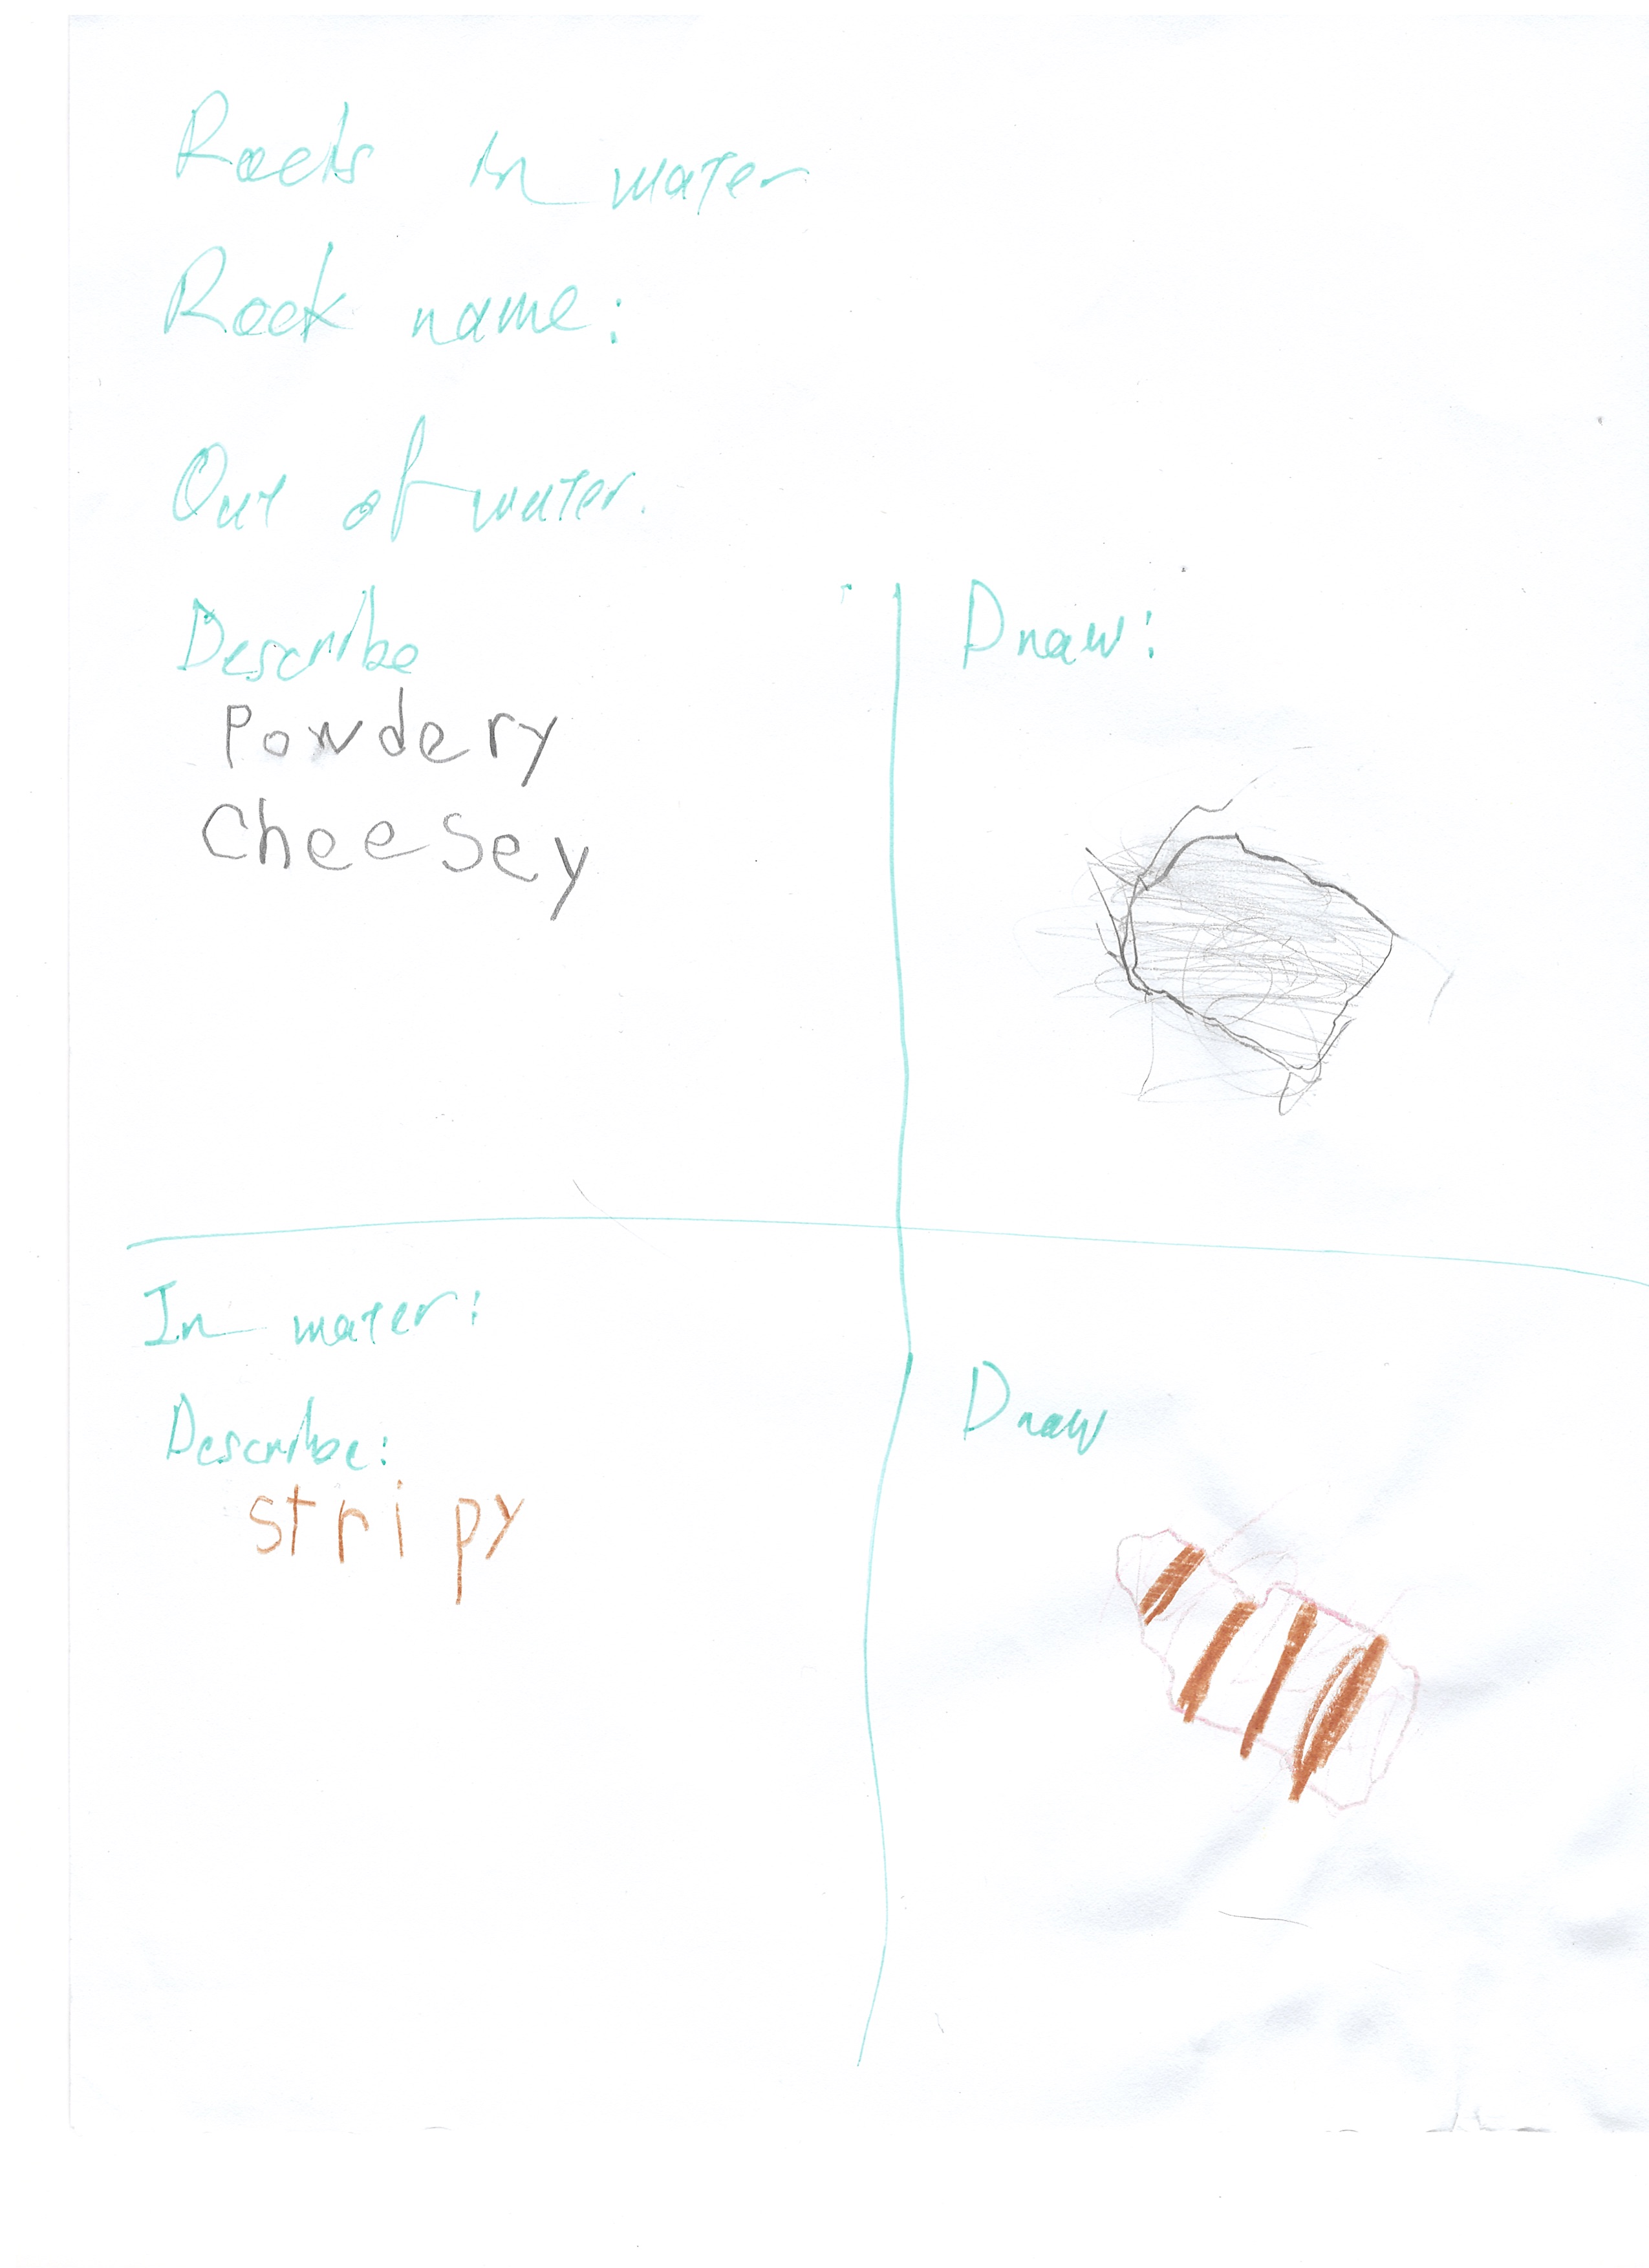 Rocks in water
Rock name:
Out of water.
Describe
Powdery
Cheesey
Draw:
In water:
Describe:
stripy
Draw